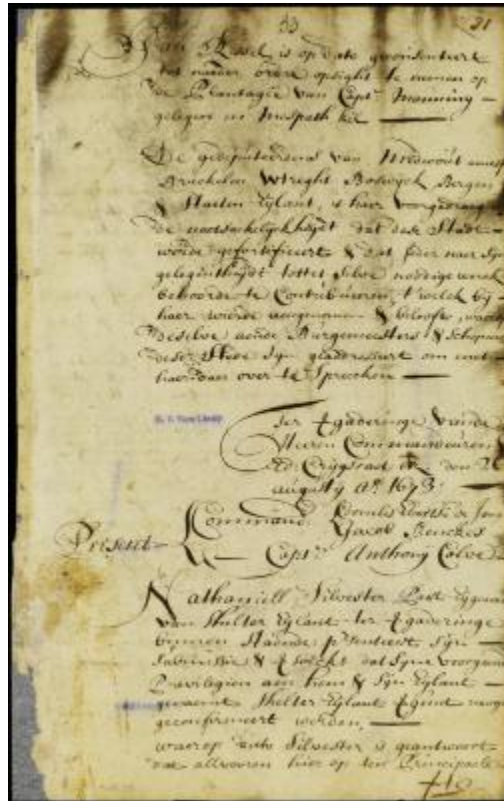 33
31
Jan Kessel is op dato geconsenteert
tot nader ordre opsight te nemen op
de Plantagie van Capt. Manning
gelegen in Mespath kil
De gedeputeerdens van Midwout
Breuckelen Wtreght Boswyck Bergen
& Staeten Eylant, is haer voorgedragen
de nootsaekelyckheyt dat dese Stadt
worde gefortificeert & dat ieder naer syn
gelegentheydt tottet selve noodige werck
behoorde te Contribueren, t'welck by
haer wierde aengenomen & belooft,
deselve aende Burgemeesters & Schepens
deser Stede syn geadresseert om met
haer daer over te spreecken
N. Y. State Library
Ter Vergaderinge vande
Heeren Commandeuren
Ed. Crygsraet den
augusty Ao. 1673.
Present
Command. Cornelis Evertse de Jonge
Jacob Benckes
Capt. Anthony Colve
Nathaniell Silvester Part Eygenaer
van Shelter Eylant ter Vergaderinge
binnen staende presenteert syn
submissie & versoeckt dat syne voorgaende
Privilegien aen hem & syn Eylant
genaemt Shelter Eylant
geconfirmeert werden,
waerop Silvester is geantwoort
dat alvooren hier op ten Principale